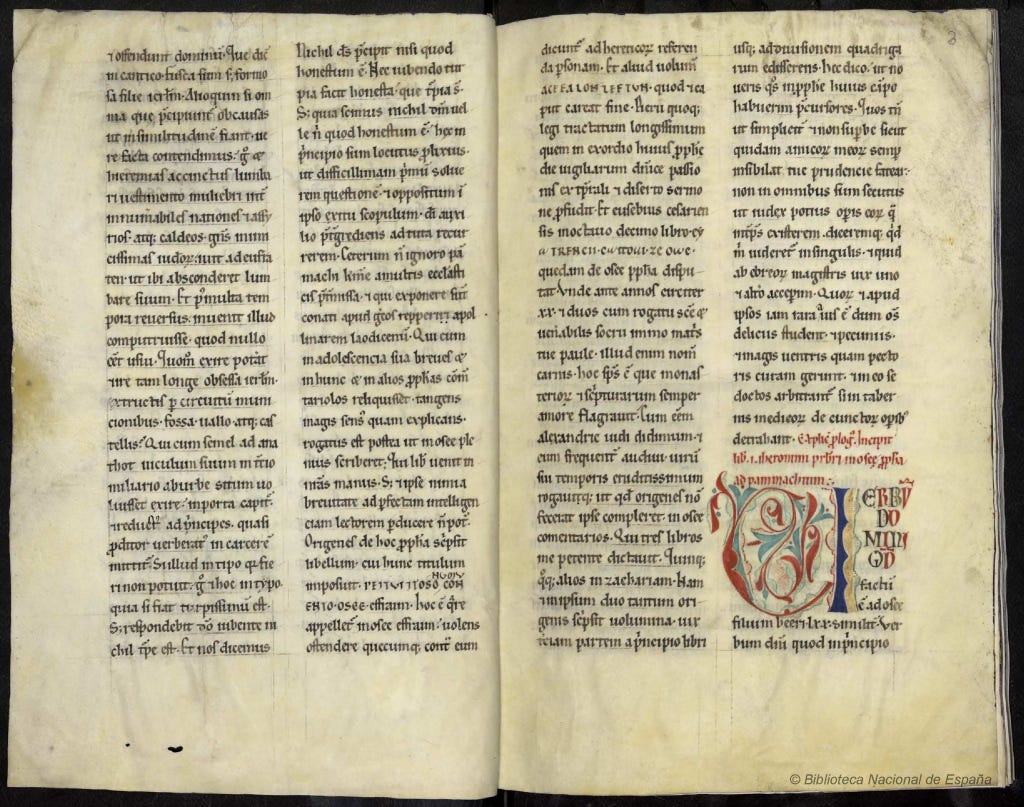 ⁊ offendunt dominū· Que dic̄
in cantico· fusca sum s; formo
sa filie ierl̄m· Alioquin si om
nia que p̄cipiunt̄ ob causas
ut in similitudinē fiant· ue
re facta contendimus· g̊ &
hieremias accinctus lumba
ri uestimento muliebri int̄
innum̄abiles nationes ⁊ assy
rios· atq; caldeos· gn̄s inimi
cissimas iudeoꝝ· iuit ad eufra
ten· ut ibi absconderet lum
bare suum· Et p̊ multa tem
pora reuersus· inuenit illud
computruisse· quod nullo
eēt usui· Quom̊ exire potat̄
⁊ ire tam longe obsessa ierl̄m·
extructis ꝑ circuitū muni
cionibus· fossa· uallo· atq; cas
tellis· Qui cum semel ad ana
thot uiculum suum in t̄cio
miliario ab urbe situm uo
luisset exire· in porta capit̄·
⁊ reduct̄ ad p̄ncipes· quasi
proditor uerberat̄ in carcerē
mittit̄· S; illud in tipo qꝛ fie
ri non potuit· g̊ ⁊ hoc in typo·
quia si fiat turpissimū est·
S; respondebit d̄o iubente ni
chil tp̄e est· Et nos dicemus
Nichil d̄s p̄cipit nisi quod
honestum ē· Nec iubendo tur
pia facit honesta que t̄pia s̄·
S; quia semus nichil d̄m uel
le n̄ quod honestum ē· hec in
p̄ncipio sum locutus prolixius·
ut difficillimam p̄mū solue
rem questionē· ⁊ oppositum ī
ipso exitu scopulum· d̄i auxi
lio p̄tgrediens ad tuta recur
rerem· Ceterum n̄ ignoro pā
machi kmē a multis ecclesti
cis p̄missa· ⁊ qui exponere sint
conati apud gr̄os repperiri apol
linarem laodicenū· Qui cum
in adolescencia sua breues &
in hunc & in alios prophās com̄
tariolos reliquisset· tangens
magis sens' quam explicans·
rogatus est postea ut in osee ple
nius scriberet· qui lib̄ uenit in
n̄ras manus· S; ⁊ ipse nimia
breuitate ad perfectam intelligen
ciam lectorem perducere n̄ pōt·
Origenes de hoc prophā sc̄psit
libellum· cui hunc titulum
imposuit·
appellet̄ in osee effraim· uolens
ostendere quecumq; cont̄ eum
dicunt̄ ad hereticoꝝ referen
da personam· Et aliud uolum̄
quod ⁊ ca
put careat ⁊ fine· Pierii quoq;
legi tractatum longissimum
quem in exordio huius prophē
die uigiliarum dn̄ice passio
nis extp̄rali ⁊ diserto sermo
ne pfudit· Et eusebius cesarien
sis in octauo decimo libro· ey
quedam de osee prophā dispu
tat· Vnde ante annos circiter
xx· ⁊ duos cum rogatu sc̄e &
uen̄abilis socrū immo mat̄s
tue paule· illud enim nom̄
carnis· hoc sp̄s ē que monas
terioꝝ ⁊ sc̄pturarum semper
amore flagrauit· Cum eēm
alexandrie uidi didimum· ⁊
eum frequent̄ audiui· uirū
sui temporis eruditissimum
rogauitq; ut qd̄ origenes nō
fecerat ipse compleret· in osee
comentarios· Qui tres libros
me petente dictauit· quinq;
q̊q; alios in zachariam· Nam
⁊ in ipsum duo tantum ori
genis sc̄psit uolumina· uix
t̄ciam partem a p̄ncipio libri
usq; ad uisionem quadriga
rum edisserens· hec dico· ut no
ueris q̊s in prophē huius cāpo
habuerim p̄cursores· Quos tn̄
ut simplicit̄ ⁊ non superbe sicut
quidam amicoꝝ meoꝝ semp̄
insibilat· tue prudencie fatear·
non in omnibus sum secutus
ut iudex potius operis eoꝝ q̄
int̄pres existerem· diceremq; qd̄
m̄ uideret̄ in singulis· ⁊ quid
ab ebreoꝝ magistris uix uno
⁊ alt̄o acceperim· Quoꝝ ⁊ apud
ipsos iam rara ᷑us ē dum om̄s
deliciis student ⁊ pecuniis·
⁊ magis uentris quam pecto
ris curam gerunt· ⁊ in eo se
doctos arbitrant̄ si in taber
nis medicoꝝ de cunctoꝝ operib'
detrahant· Explic̄ prolog̊· Incipit
lib· i· iheronimi prb̄ri in osee prophā
ad pammachium·
VERBŪ
DO
MINI
QD̄
factū
ē ad osee
filium beeri· lxx· similit̄· Ver
bum dn̄i quod in p̄ncipio
3
© Biblioteca Nacional de España